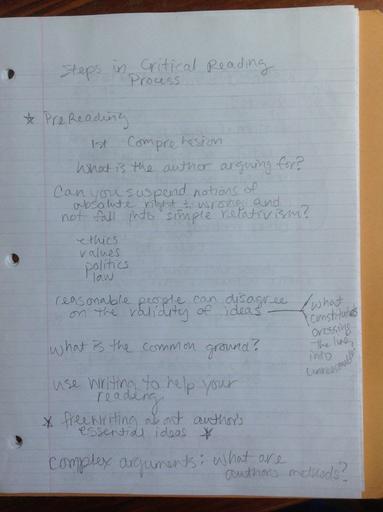 Steps in Critical Reading
Process
* PreReading
1st Comprehension
What is the author arguing for?
Can you suspend notions of
absolute right & wrong and
not fall into simple relativism?
ethics
values
politics
law
reasonable people can disagree
on the validity of ideas
what
constitutes
crossing
the line
into
unreasonable
what is the common ground?
use writing to help your
reading
* freewriting about author's
essential ideas *
complex arguments: what are
authors methods?